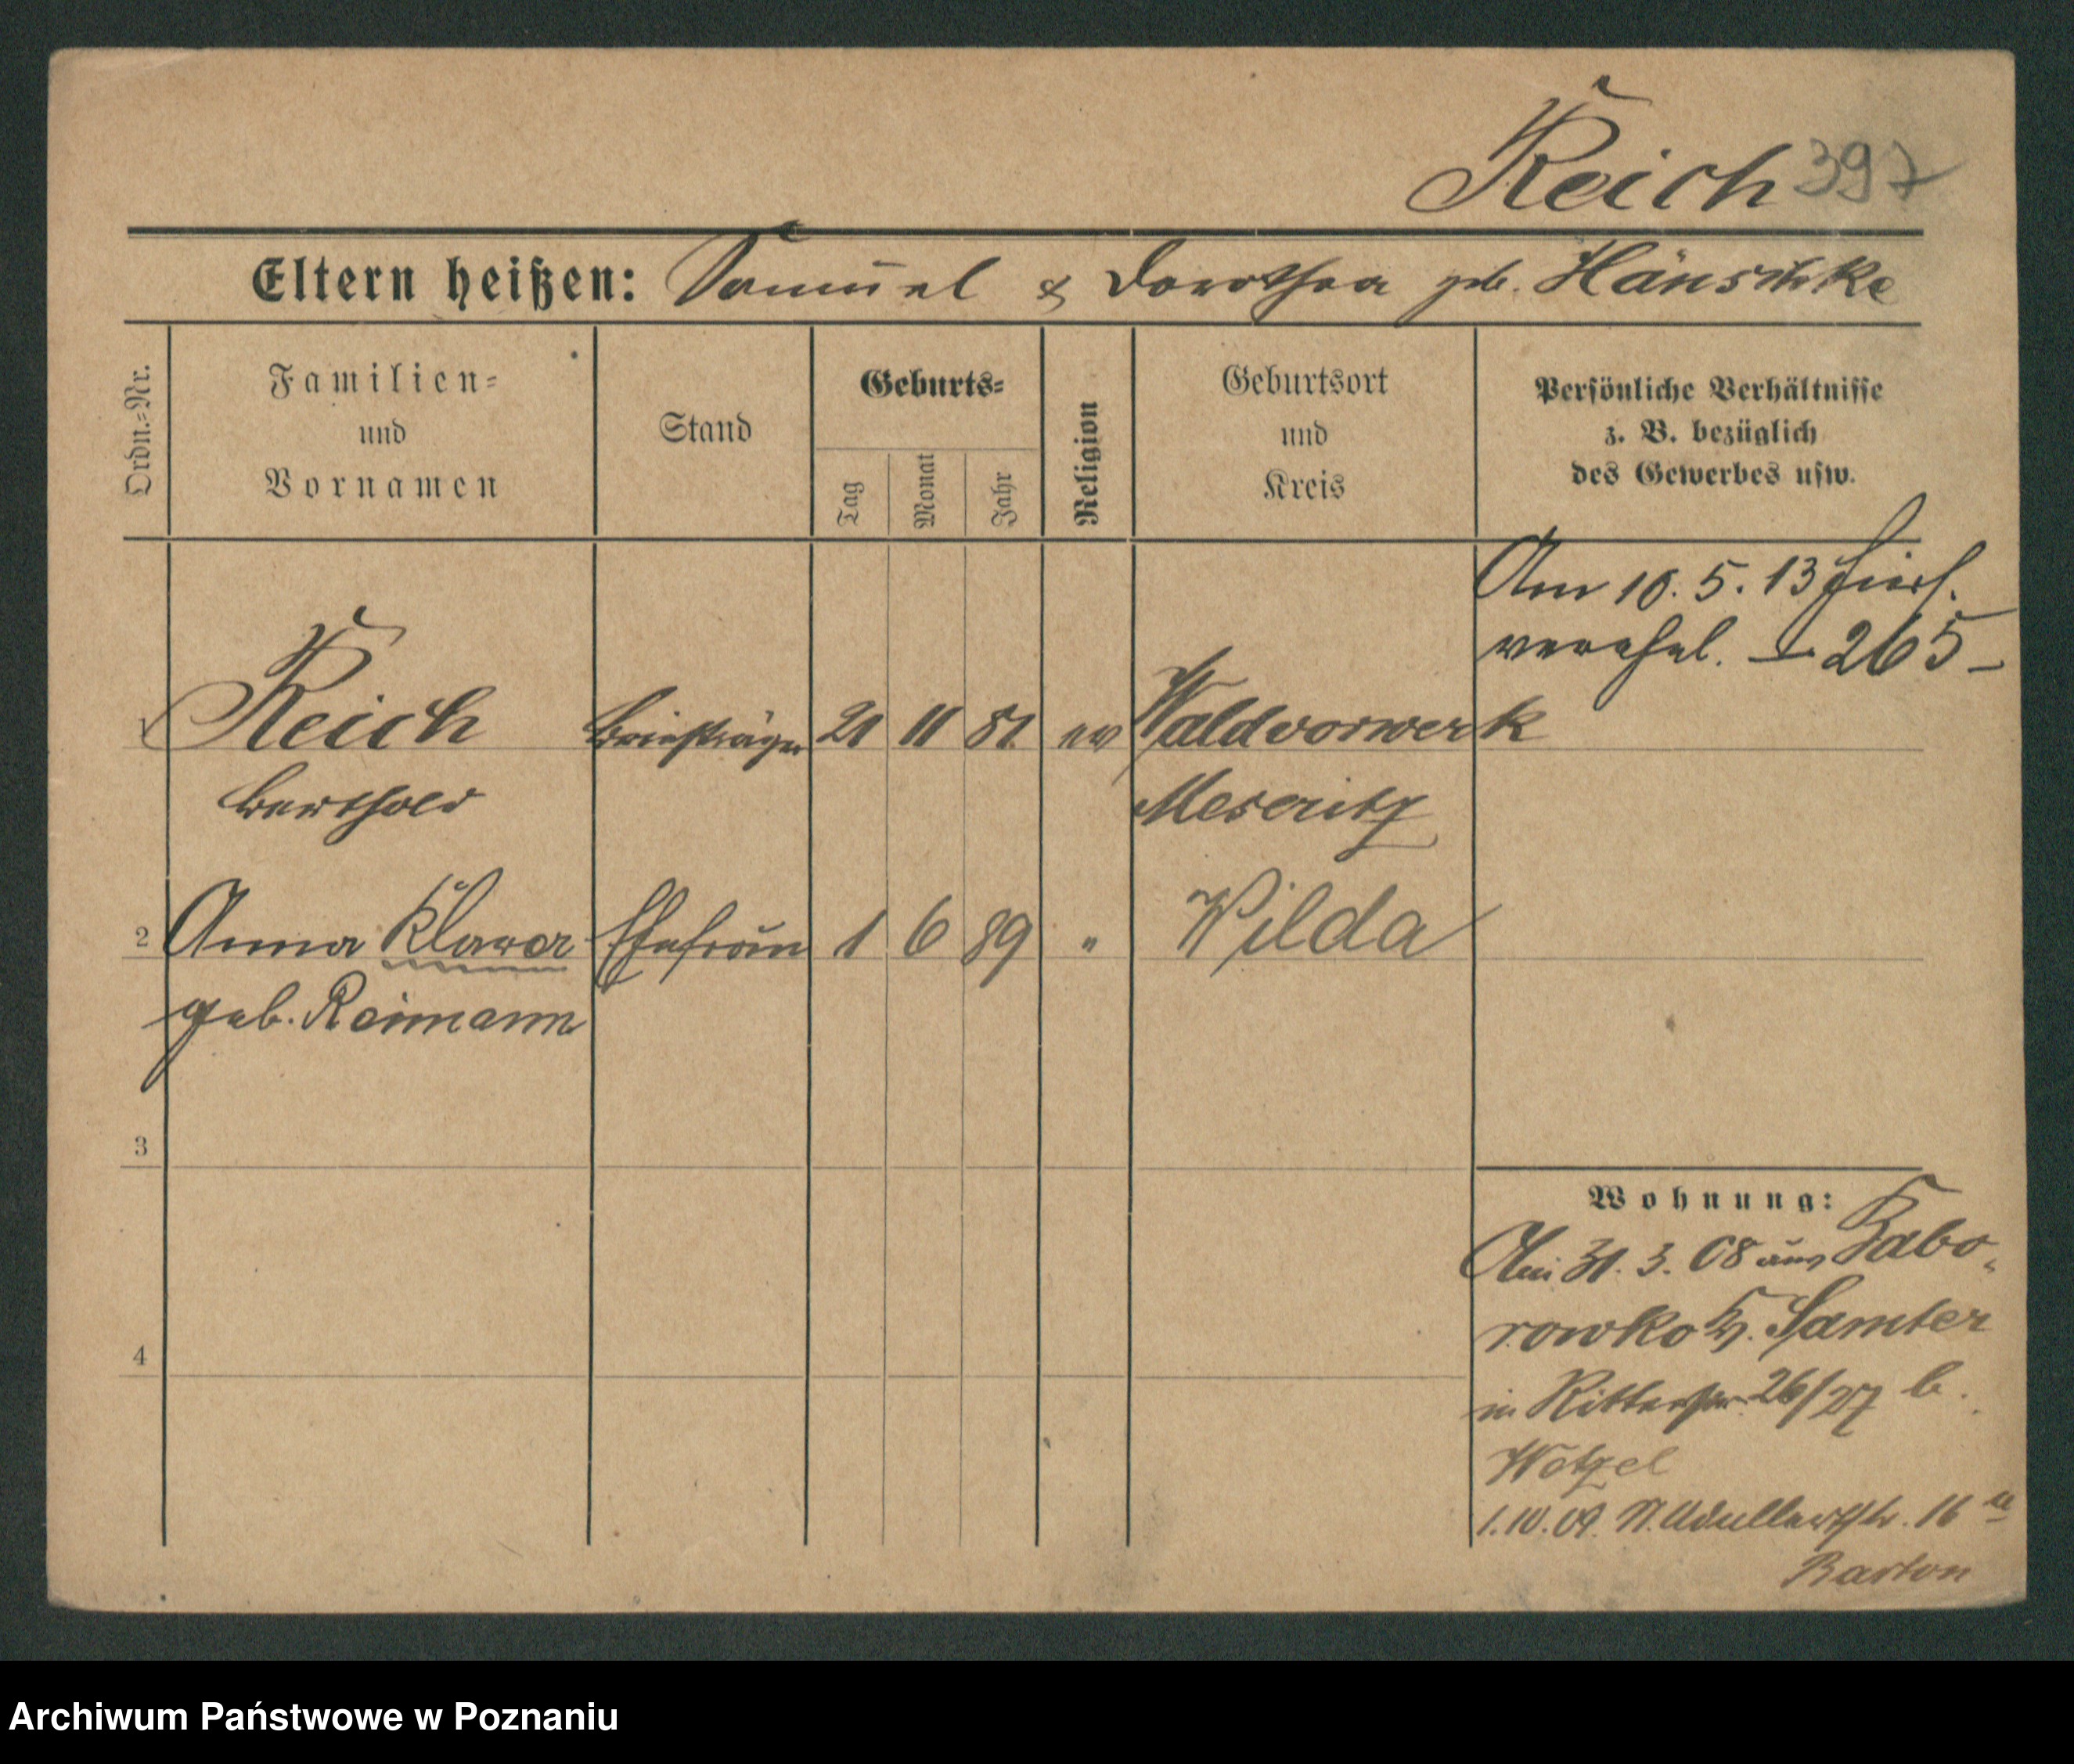 Reich 397
Eltern heißen: Samuel & Dorothea geb. Hänschke
Ordn.-Nr.
Familien-
und
Vornamen
Stand
Geburts-
Tag
Monat
Jahr
Religion
Geburtsort
und
Kreis
Persönliche Verhältnisse
z. B. bezüglich
des Gewerbes usw.
Am 10. 5. 13 hier
verehel. 265
1 Reich Briefträger 21 11 81 ev Waldvorwerk
Berthold Meseritz
2 Anna Klara Ehefrau 1 6 89 " Wilda
geb. Reimann
3
4
Wohnung:
Am 31. 3. 08 aus Babo-
rowko Kr. Samter
in Ritterstr. 26/27 b.
Wotzel
1. 10. 09. 16 a
Barton
Archiwum Państwowe w Poznaniu